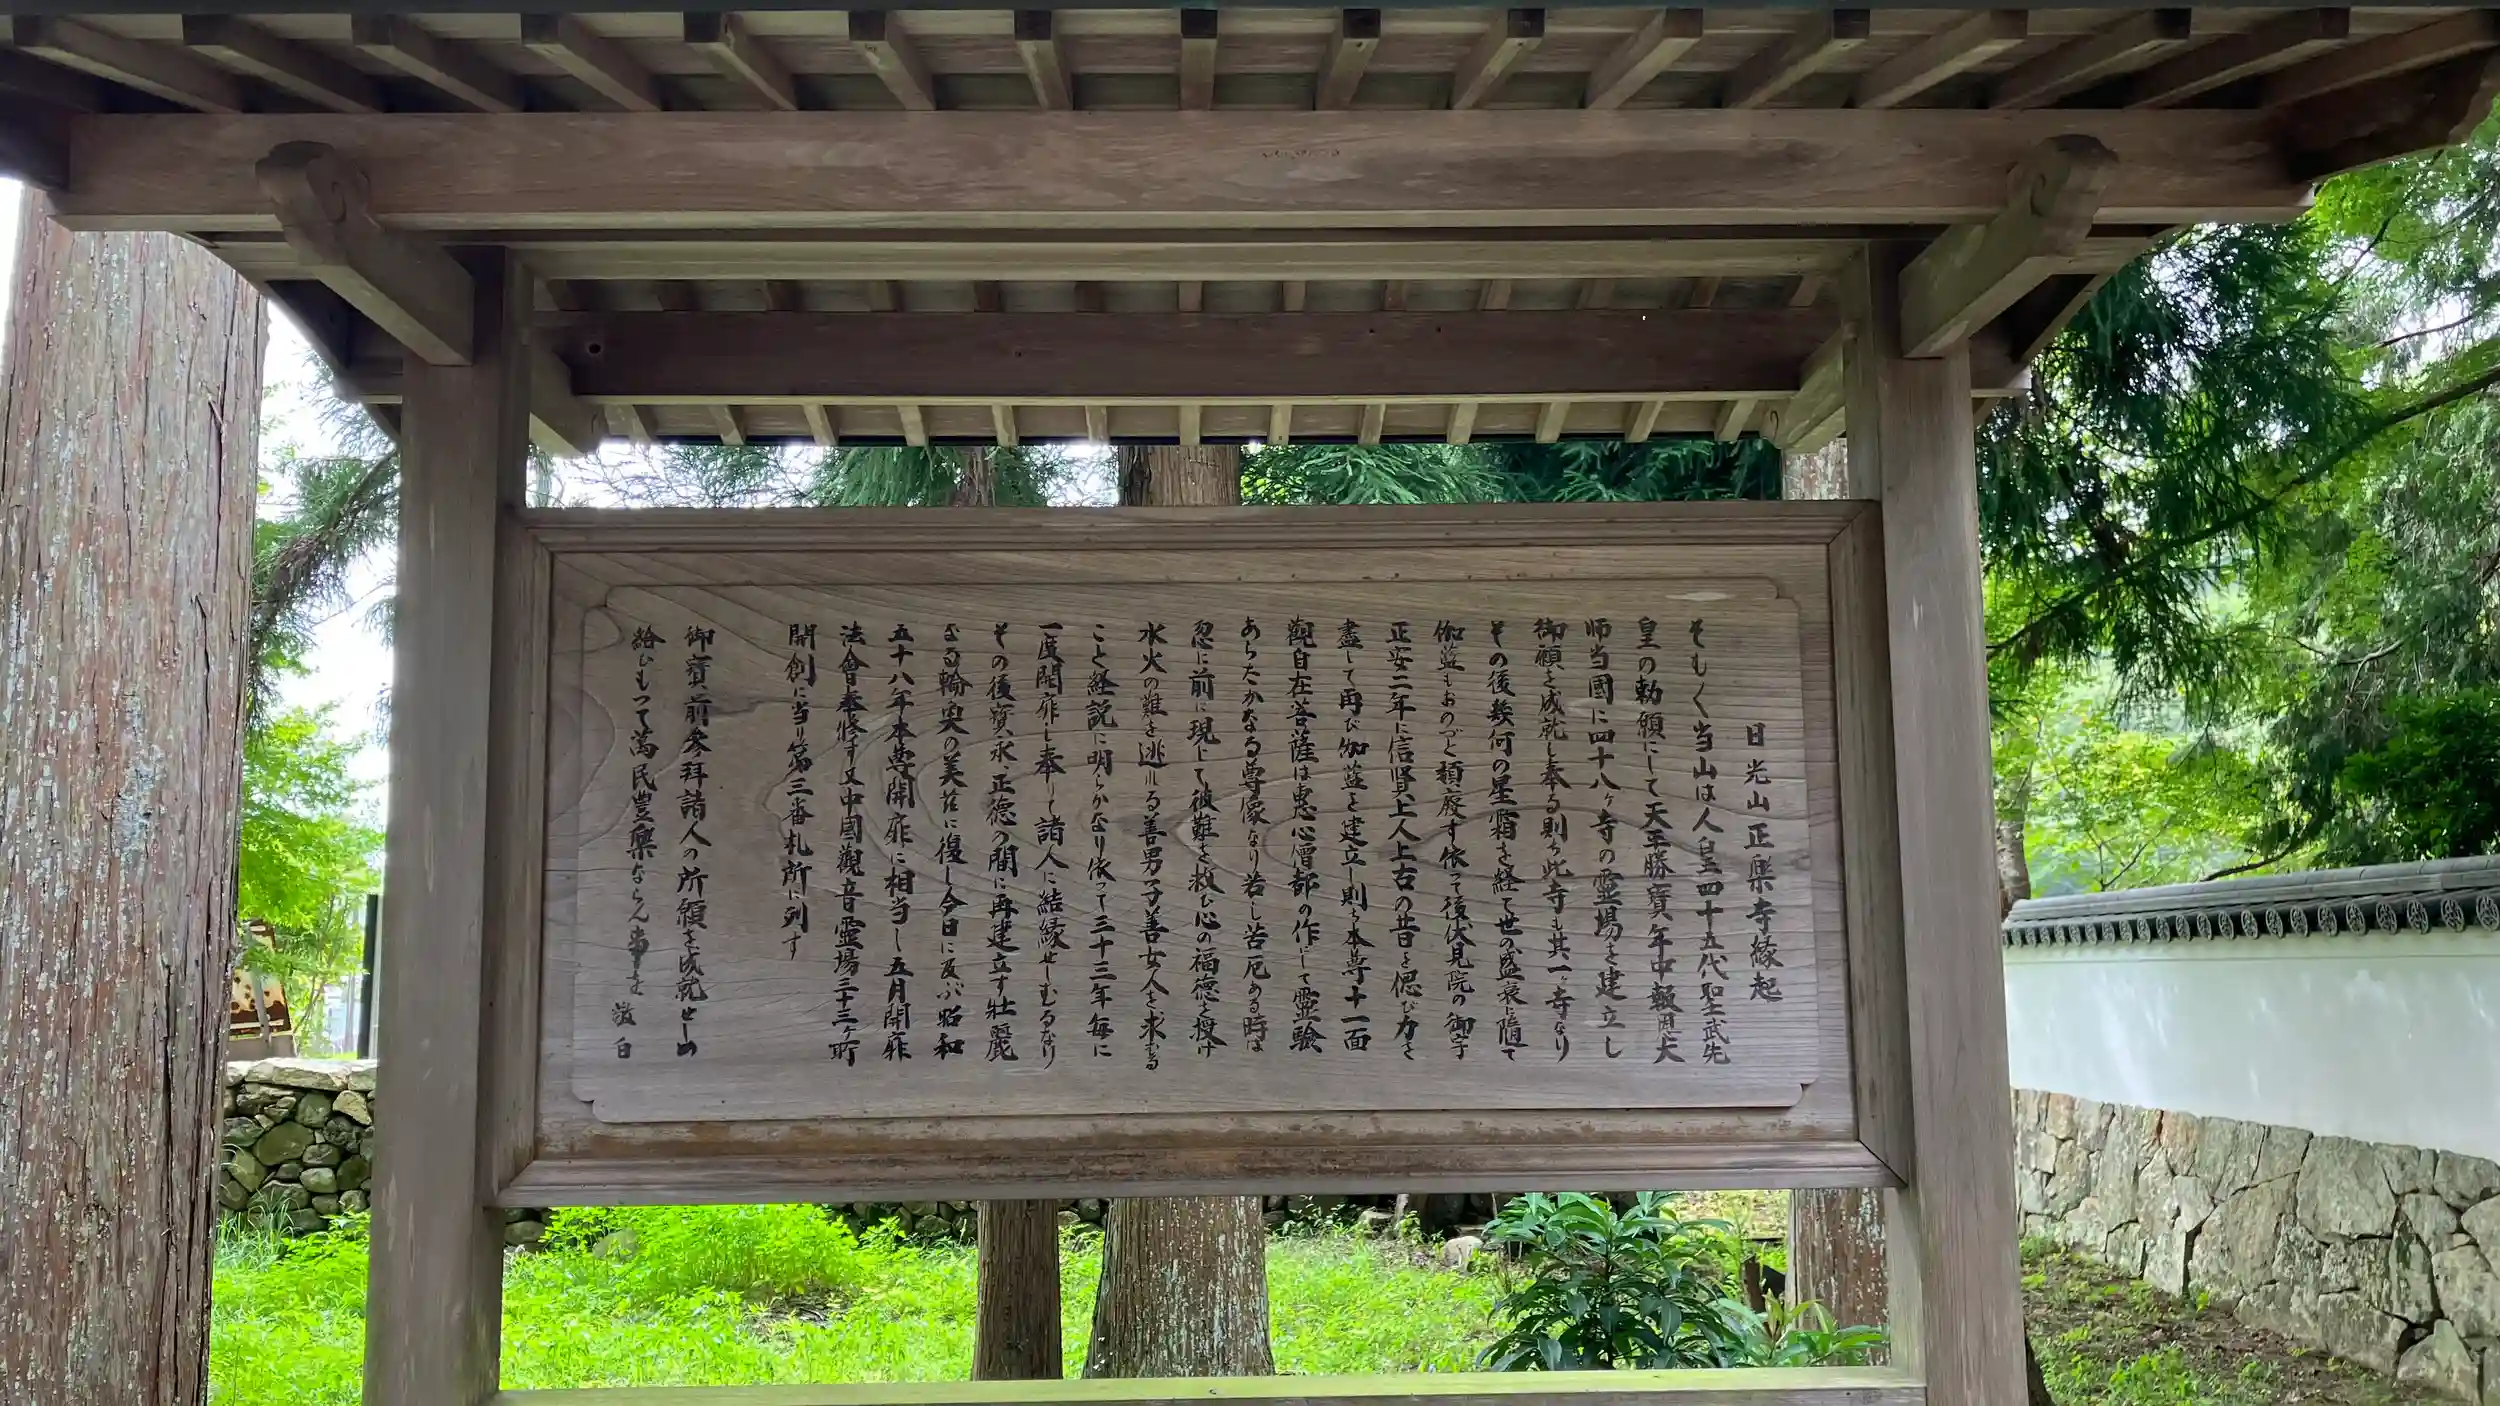 日光山正樂寺縁起
そも〱当山は人皇四十五代聖武先
皇の勅願にして天平勝寳年中報恩大
師当國に四十八ヶ寺の霊場を建立し
御願を成就し奉る則ち此寺も其一ヶ寺なり
その後幾何の星霜を経て世の盛衰に随て
伽藍もおのづと頽廢す依って後伏見院の御宇
正安二年に信賢上人上古の昔を偲び力を
盡して再び伽藍を建立し則ち本尊十一面
觀自在菩薩は恵心僧都の作にして霊驗
あらたかなる尊像なり若し苦厄ある時は
忽に前に現して彼難を救ひ心の福德を授け
水火の難を逃るる善男子善女人を求むる
こと経説に明らかなり依って三十三年毎に
一度開扉し奉りて諸人に結縁せしむるなり
その後寳永、正德の間に再建立す壮麗
なる輪奐の美茲に復し今日に及ぶ昭和
五十八年本尊開扉に相当し五月開扉
法會奉修す又中國觀音霊場三十三ヶ所
開創に当り第三番札所に列す
御寳前参拜諸人の所願を成就せしめ
給ひもって萬民豊樂ならん事を
敬白